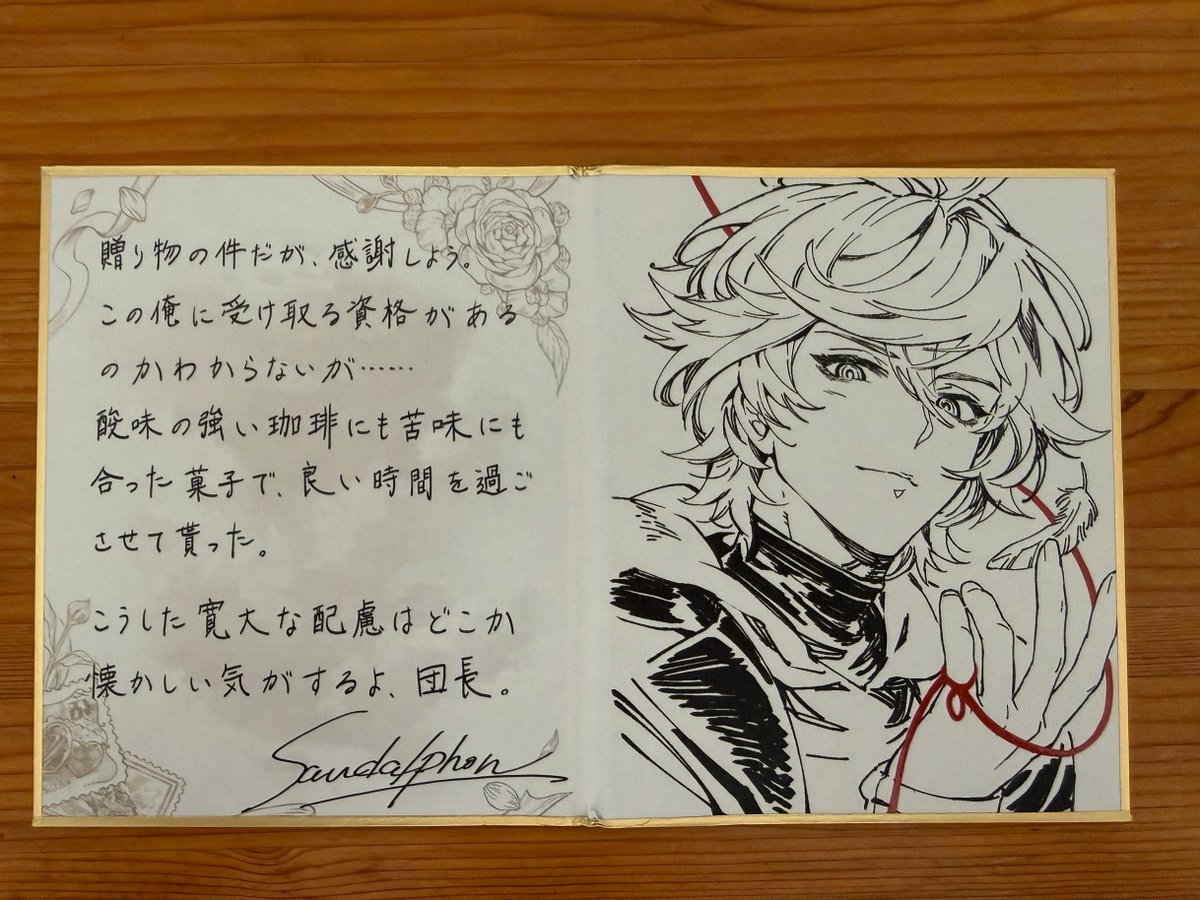 贈り物の件だが、感謝しよう。
この俺に受け取る資格がある
のかわからないが……
酸味の強い珈琲にも苦味にも
合った菓子で、良い時間を過ご
させて貰った。
こうした寛大な配慮はどこか
懐かしい気がするよ、団長。
Sandalphon